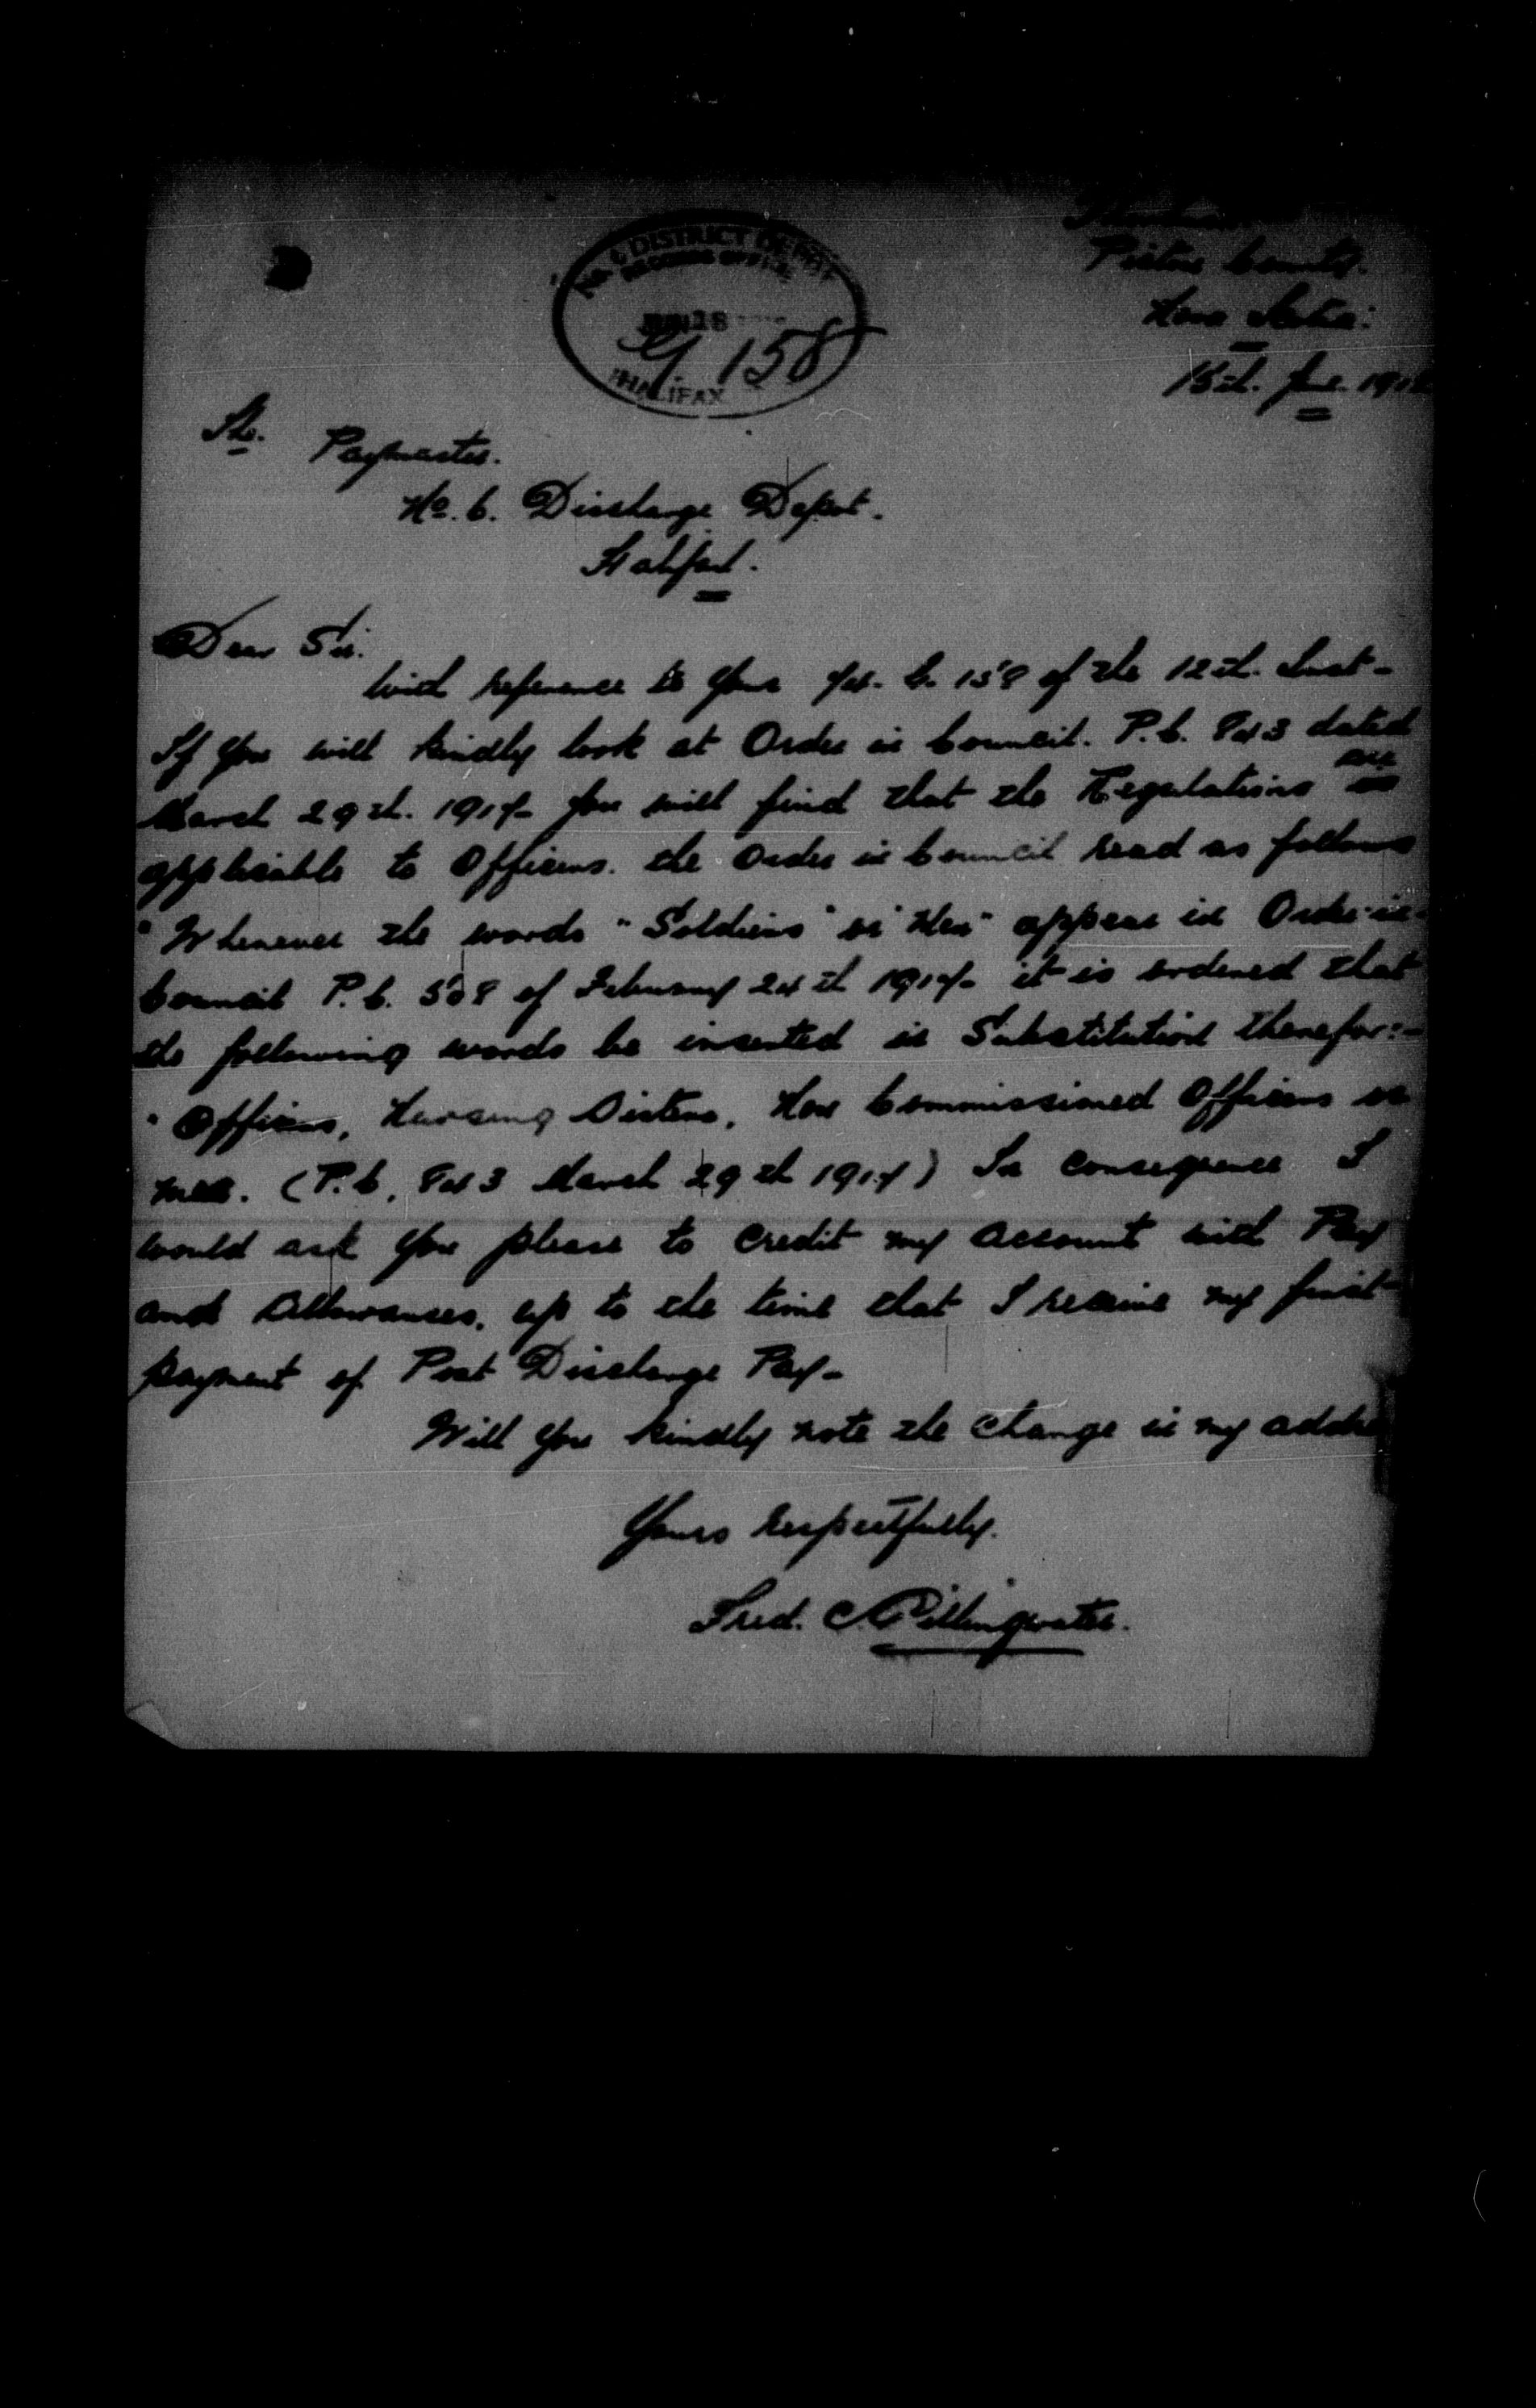 No. 6 DISTRICT DEPOT
RECORDS OFFICE
28
G 158
HALIFAX
Pictou County.
Nova Scotia.
15th. Jan. 191
The
Paymaster.
No. 6. Discharge Depot.
Halifax.
Dear Sir.
With reference to your G. 158 of the 12th. Inst-
If you will kindly look at Order in Council. P.C. 843 dated
March 29th. 1917- you will find that the Regulations are
applicable to Officers. the Order in Council read as follows
"Whenever the words "Soldiers" or "Men" appear in Order-in-
Council P.C. 508 of February 24th 1917- it is ordered that
the following words be inserted in Substitution therefor:-
"Officers, Nursing Sisters, Non Commissioned Officers or
men. (P.C. 843 March 29th 1917) In Consequence I
would ask you please to Credit my Account with Pay
and Allowances, up to the time that I receive my first
payment of Post Discharge Pay-
Will you kindly note the Change in my addre
Yours respectfully.
Fred. C. Pillingwater.